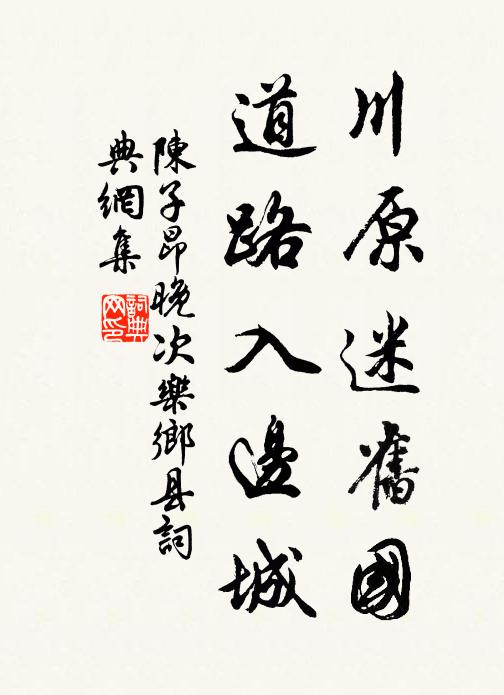 川原迷舊國
道路入邊城
陳子昂晚次樂鄉县詞
典網集
詞典
网印